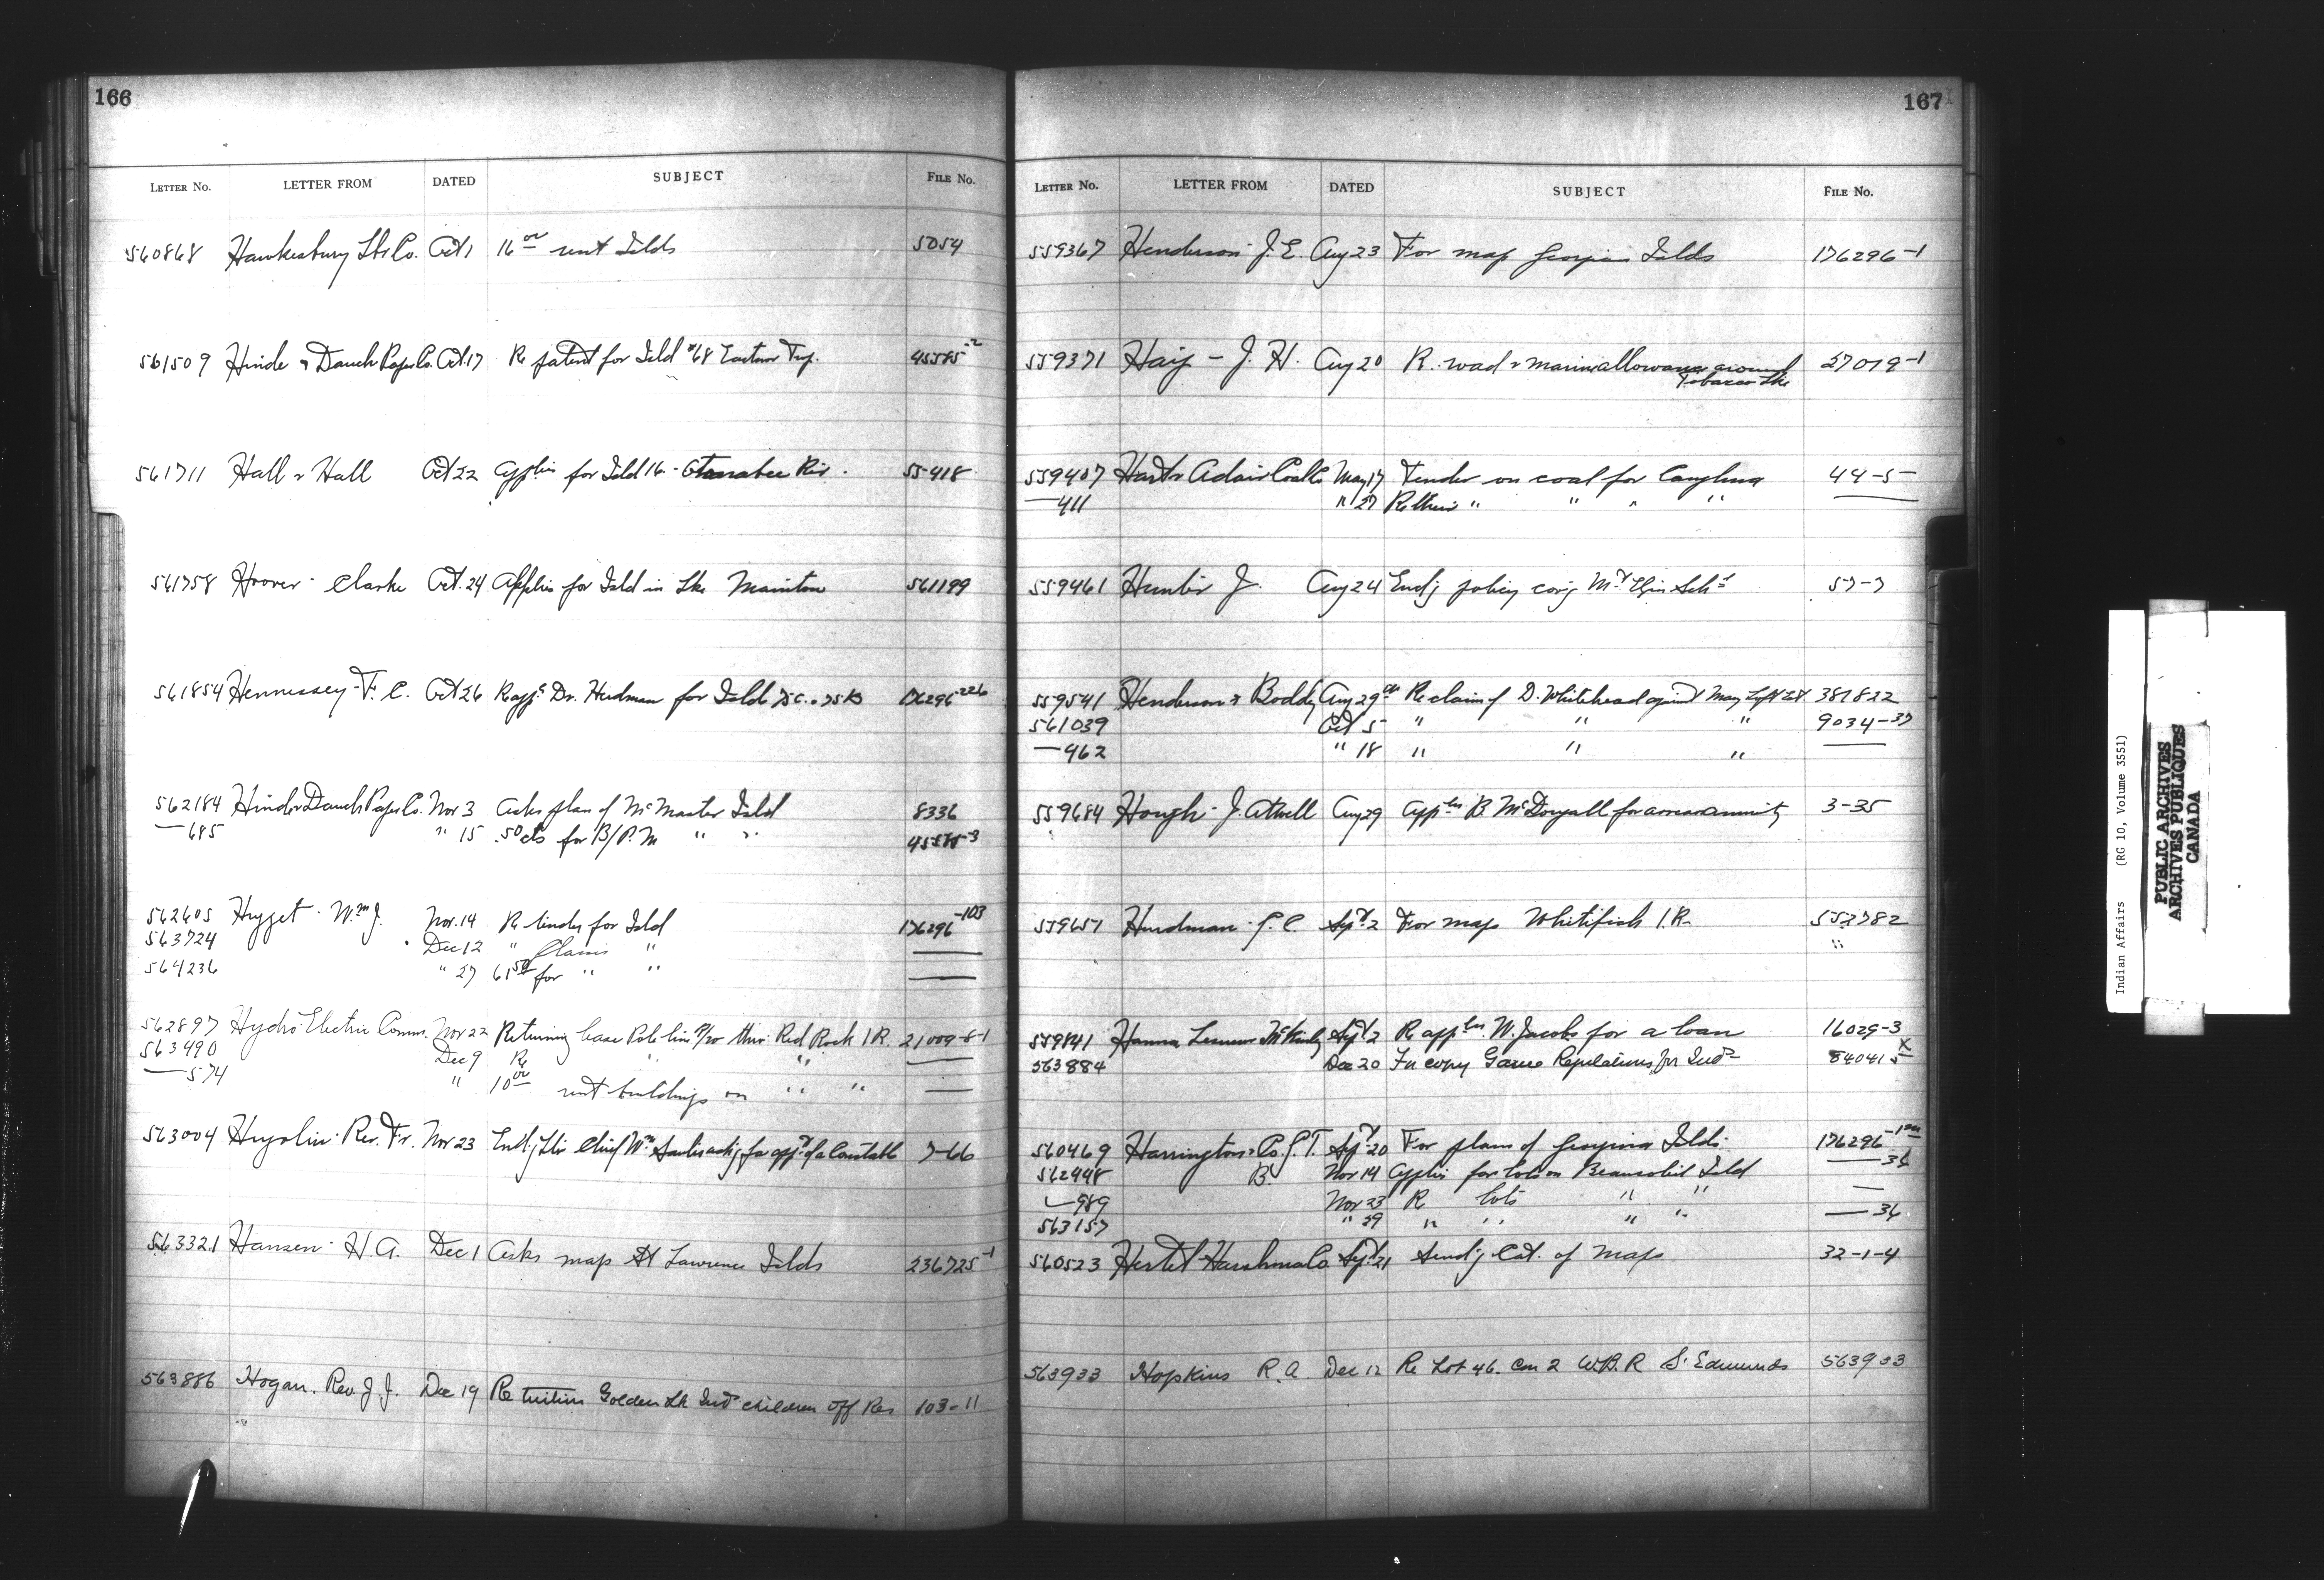 166
LETTER No. LETTER FROM DATED SUBJECT FILE No.
560868 Hawkesbury Co. Oct 1 16 00 rent Isld 5054
561509 Hinde & Dauch Paper Co. Oct. 17 Re patent for Isld #68 Eastnor Twp. 45585-2
561711 Hall & Hall Oct 22 Applies for Isld 16 - Otonabee Riv. 55418
561758 Hoover - Clarke Oct. 24 Applies for Isld in Lke Manitou 561199
561854 Hennessey - F. C. Oct 26 Re app. Dr. Herdman for Islds 75 C. 176296-226
562184 Hinde & Dauch Paper Co. Nov 3 Asks plan of McMaster Isld 8336
—685 " 15 .50 cts for B/P. M " " 45585-3
562605 Hugget - Wm J. Nov. 14 Re tender for Isld 176296-103
563724 Dec 12 " Claims " —
564236 " 27 61 50 for " " —
562897 Hydro Electric Comm. Nov 22 Returning lease Pole line thro. Red Rock I R. 21009-8-1
563490 Dec 9 Re " " —
—574 " 10 00 rent buildings on " " —
563004 Hugolin - Rev. Fr. Nov 23 Chief Wm for app. of a Constable 7-66
563321 Hansen - H. A. Dec 1 Asks map St Lawrence Islds 236725-1
563886 Hogan. Rev. J. J. Dec 19 Re tuition Golden Lk Ind children off Res 103-11
167
LETTER No. LETTER FROM DATED SUBJECT FILE No.
559367 Henderson J. E. Aug 23 For map Georgian Islds 176296-1
559371 Haig - J. H. Aug 20 R. road & marine allowance around 27019-1
Tobacco Lke
559407 Hart & Adair Coal Co May 17 Tender on coal for Caughna 44-5-
—411 " 27 Re their " " " " —
559461 Hunter J. Aug 24 Encl'g policy cov'g Mt Elgin Sch 57-7
559541 Henderson & Boddy Aug 29 Re claim of D. Whitehead against May 387822
561039 Oct 5 " " " 9034-37
—462 " 18 " " " —
559684 Hough - J. Atwell Aug 29 B. McDougall for arrears annuity 3-35
559657 Hurdman - Sept 2 For map Whitefish I. R. 553782
"
559841 Hanna, Lesueur McKinley Sept 2 Re W. Jacobs for a loan 16029-3
563884 Dec 20 For copy Game Regulations for Ind 84041 5 X
560469 Harrington & Co. G. T. Sept 20 For plans of Georgina Islds. 176296-1
562448 B. Nov 14 Applies for lots on Beausoliel Isld — 36
—989 Nov 23 Re lots " " —
563157 " 29 " " " " — 36
560523 Hertel Harshman Co Sept 21 Send'g Cat. of Maps 32-1-4
563933 Hopkins R. A. Dec 12 Re Lot 46. Con 2 W. B. R St. Edmunds 563933
Indian Affairs (RG 10, Volume 3551)
PUBLIC ARCHIVES
ARCHIVES PUBLIQUES
CANADA